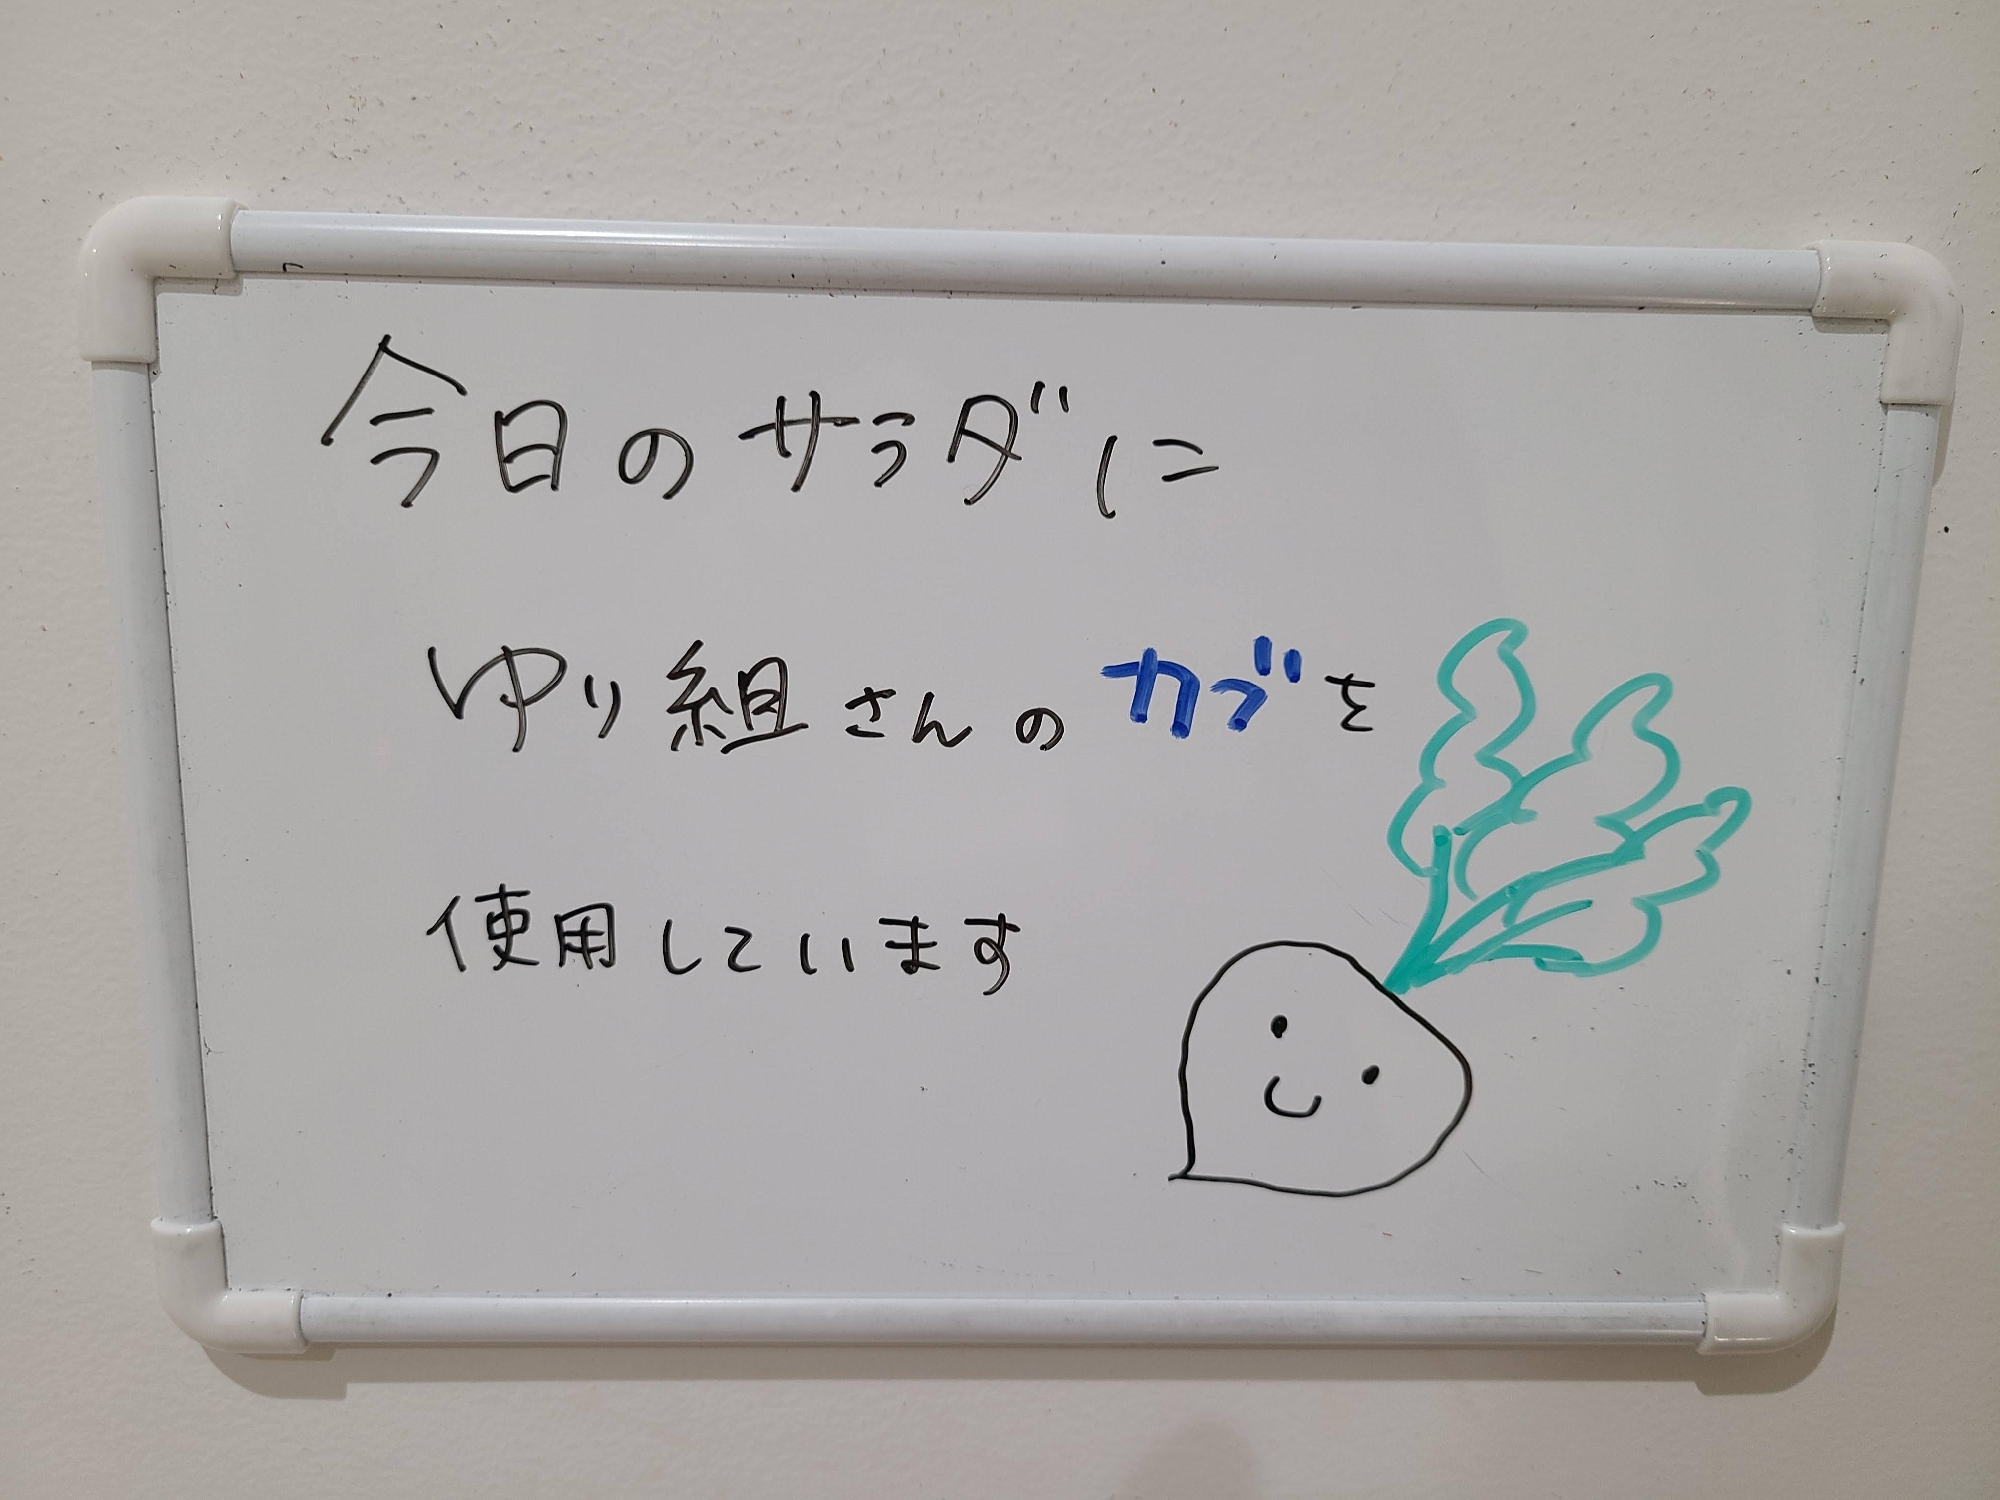 今日のサラダに
ゆり組さんのカブを
使用しています